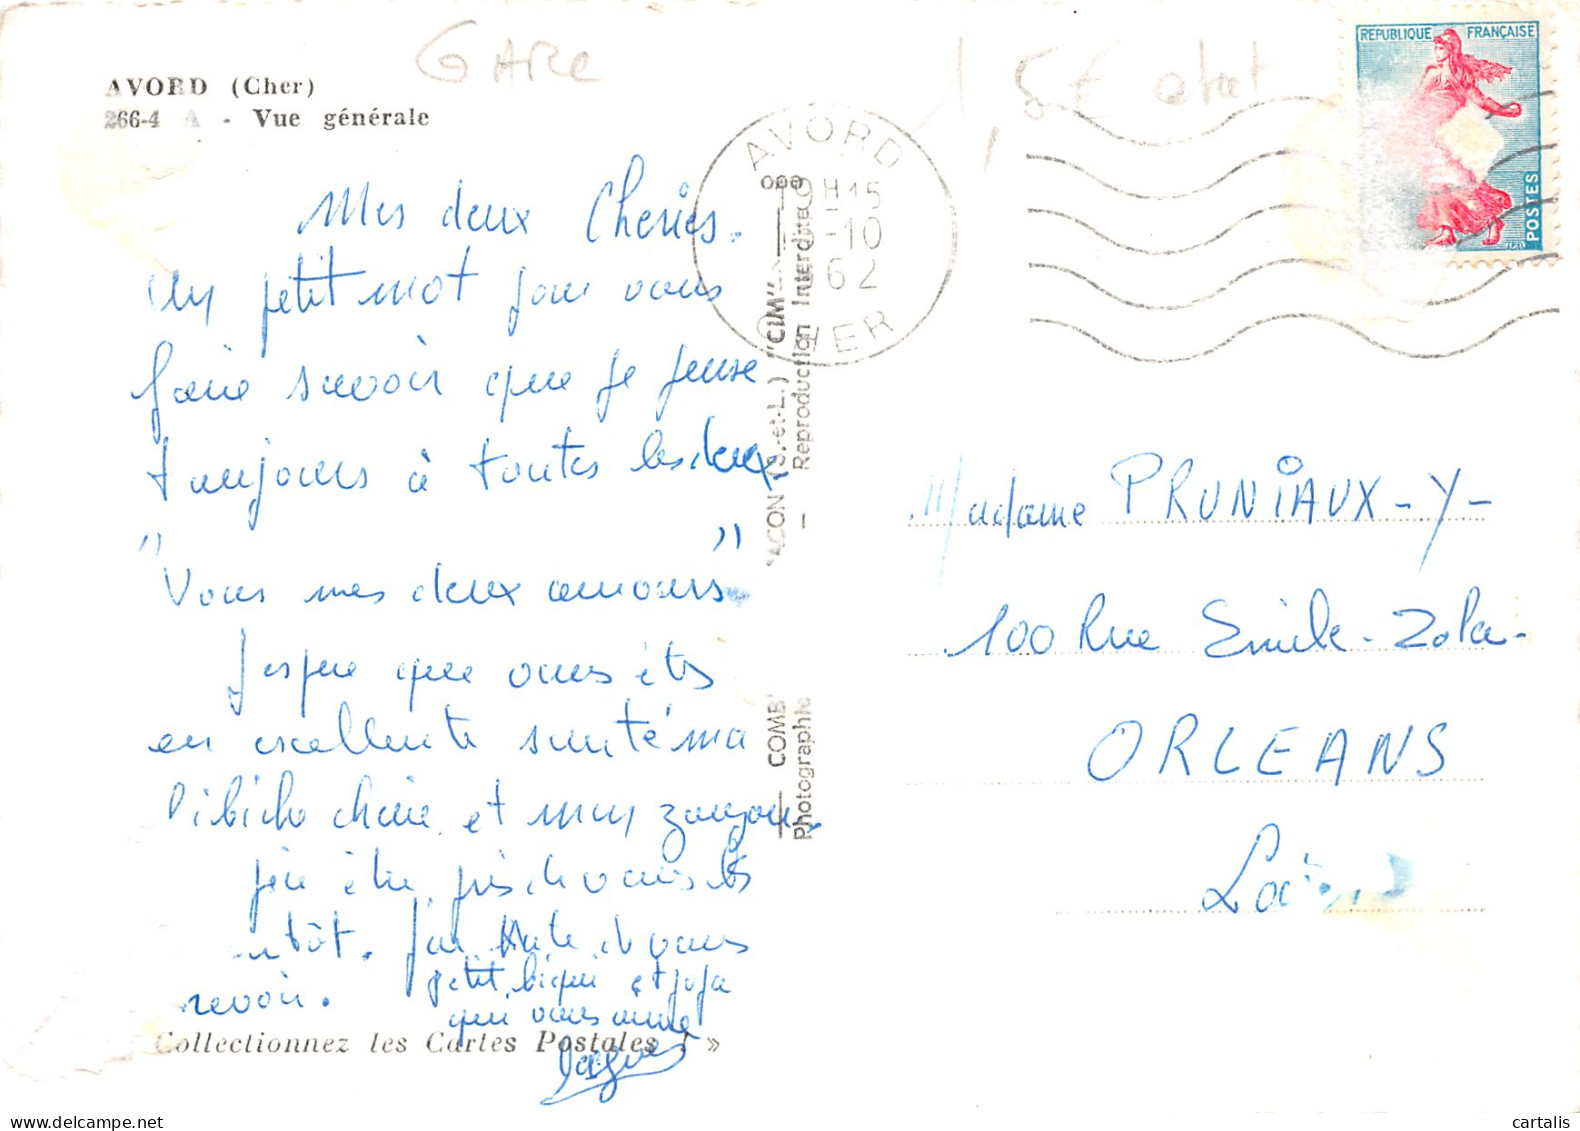 GARE
1,5€
AVORD (Cher)
266-4 A - Vue générale
REPUBLIQUE FRANÇAISE
POSTES
AVORD
19H15
-10
1962
CHER
Mes deux Cheries.
Un petit mot pour vous
faire savoir que je pense
toujours à toutes les deux
"Vous mes deux amours"
J'espère que vous êtes
en excellente santé ma
Bibiche chérie et mon
être près de vous
bientôt. J'ai hâte de vous
revoir. petit et
qui vous aime
Jacques
« Collectionnez les Cartes Postales ! »
COMB MACON (S.-et-L.) "CIM"
Photographie — Reproduction Interdite
Madame PRUNIAUX - Y -
100 Rue Emile - Zola -
ORLEANS
cartalis
delcampe.net